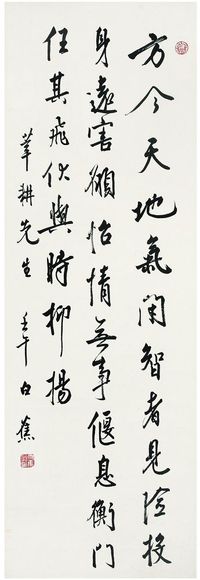 方今天地氣閉智者見險投
身遠害願怡情無事偃息衡門
任其飛伏與時抑揚
莘耕先生 壬午 白蕉